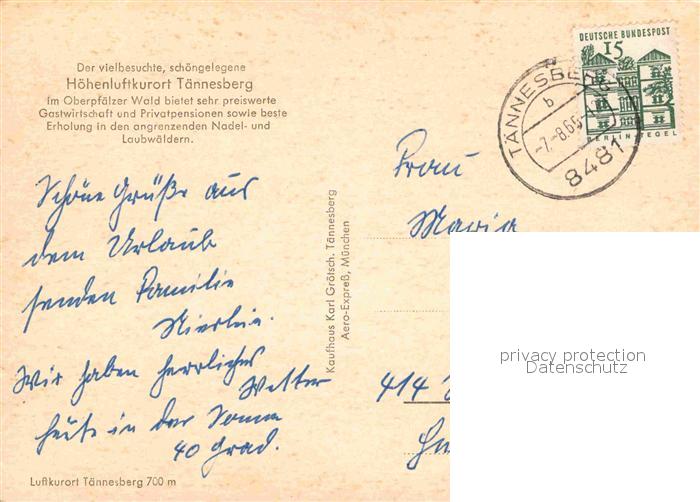 Der vielbesuchte, schöngelegene
Höhenluftkurort Tännesberg
im Oberpfälzer Wald bietet sehr preiswerte
Gastwirtschaft und Privatpensionen sowie beste
Erholung in den angrenzenden Nadel- und
Laubwäldern.
Schöne Grüße aus
dem Urlaub
senden Familie
Wir haben herrliches
Wetter
heute in der Sonne
40 Grad.
Luftkurort Tännesberg 700 m
Kaufhaus Karl Grötsch, Tännesberg
Aero-Expreß, München
DEUTSCHE BUNDESPOST
15
BERLIN-TEGEL
TÄNNESBERG
b
-7.-8.65
8481
Frau
Maria
414
privacy protection
Datenschutz